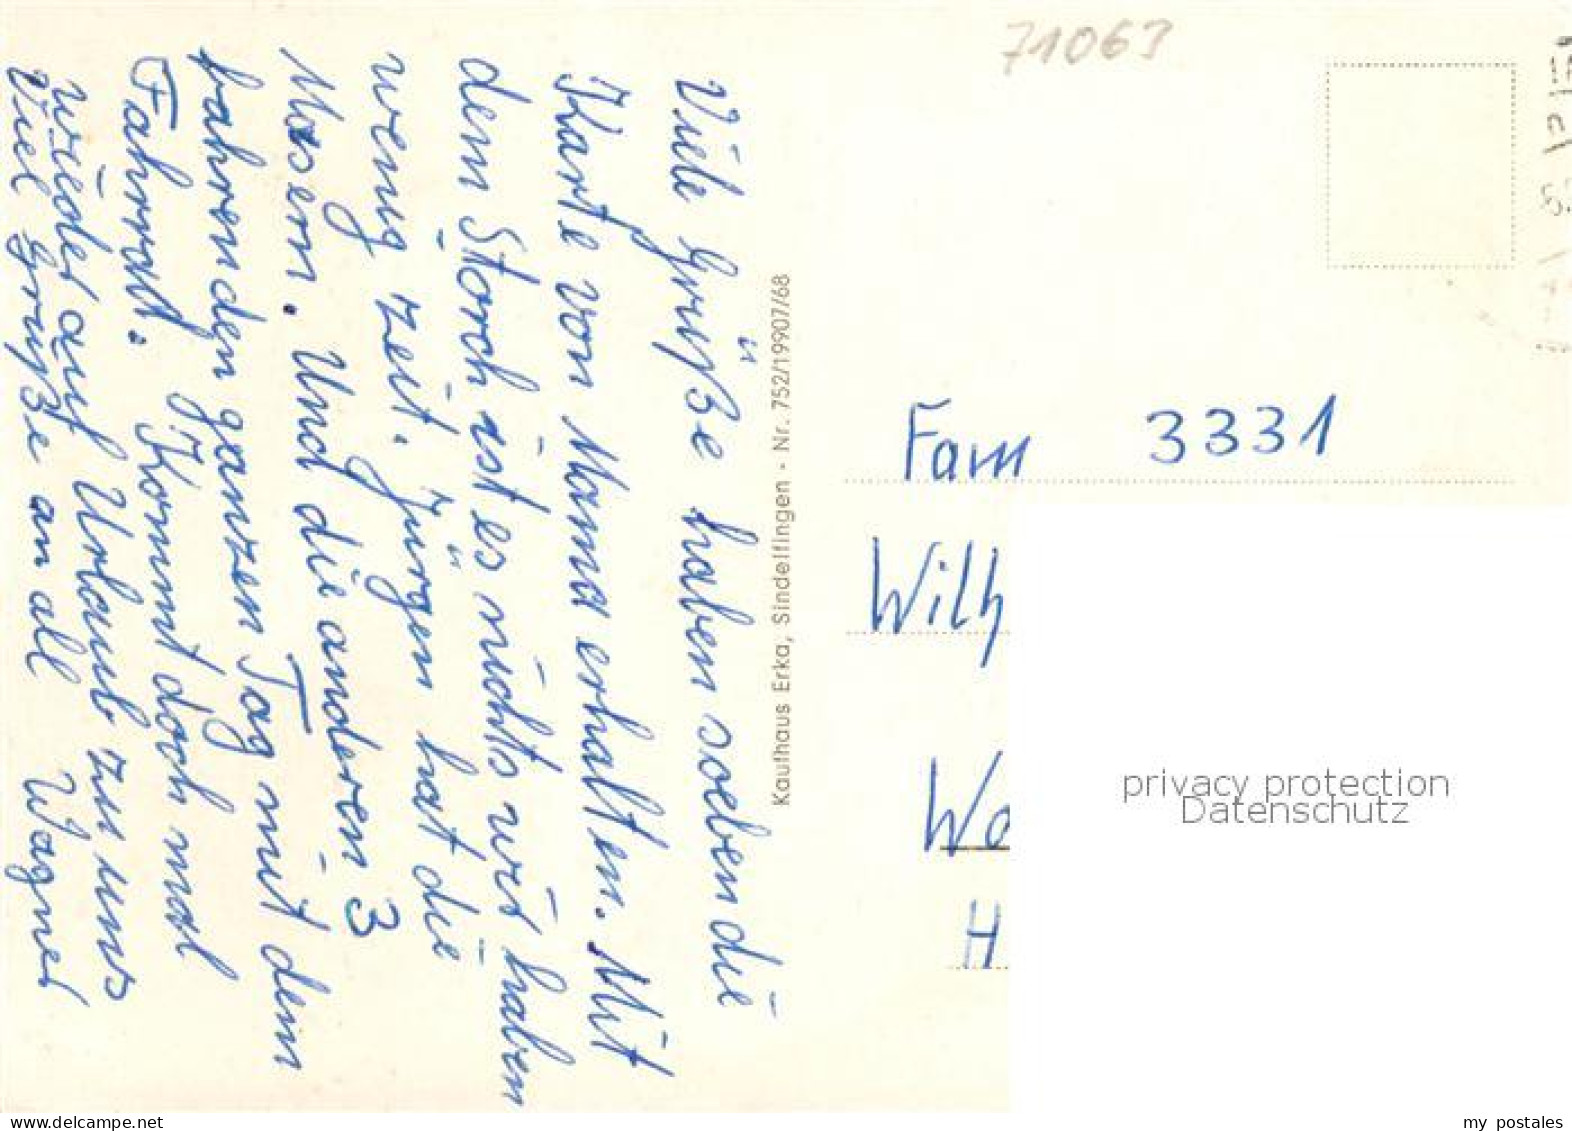 71063
Viele Grüße haben soeben die
Karte von Mama erhalten. Mit
dem Storch ist es nichts wir haben
wenig zeit. Jürgen hat die
Masern. Und die anderen 3
fahren den ganzen Tag mit dem
Fahrrat. Kommt doch mal
wieder auf Urlaub zu uns
Viel Grüße an all Wagner
Kaufhaus Erka, Sindelfingen - Nr. 752/19907/68
Fam 3331
Wilh
Wa
H
privacy protection
Datenschutz
my postales